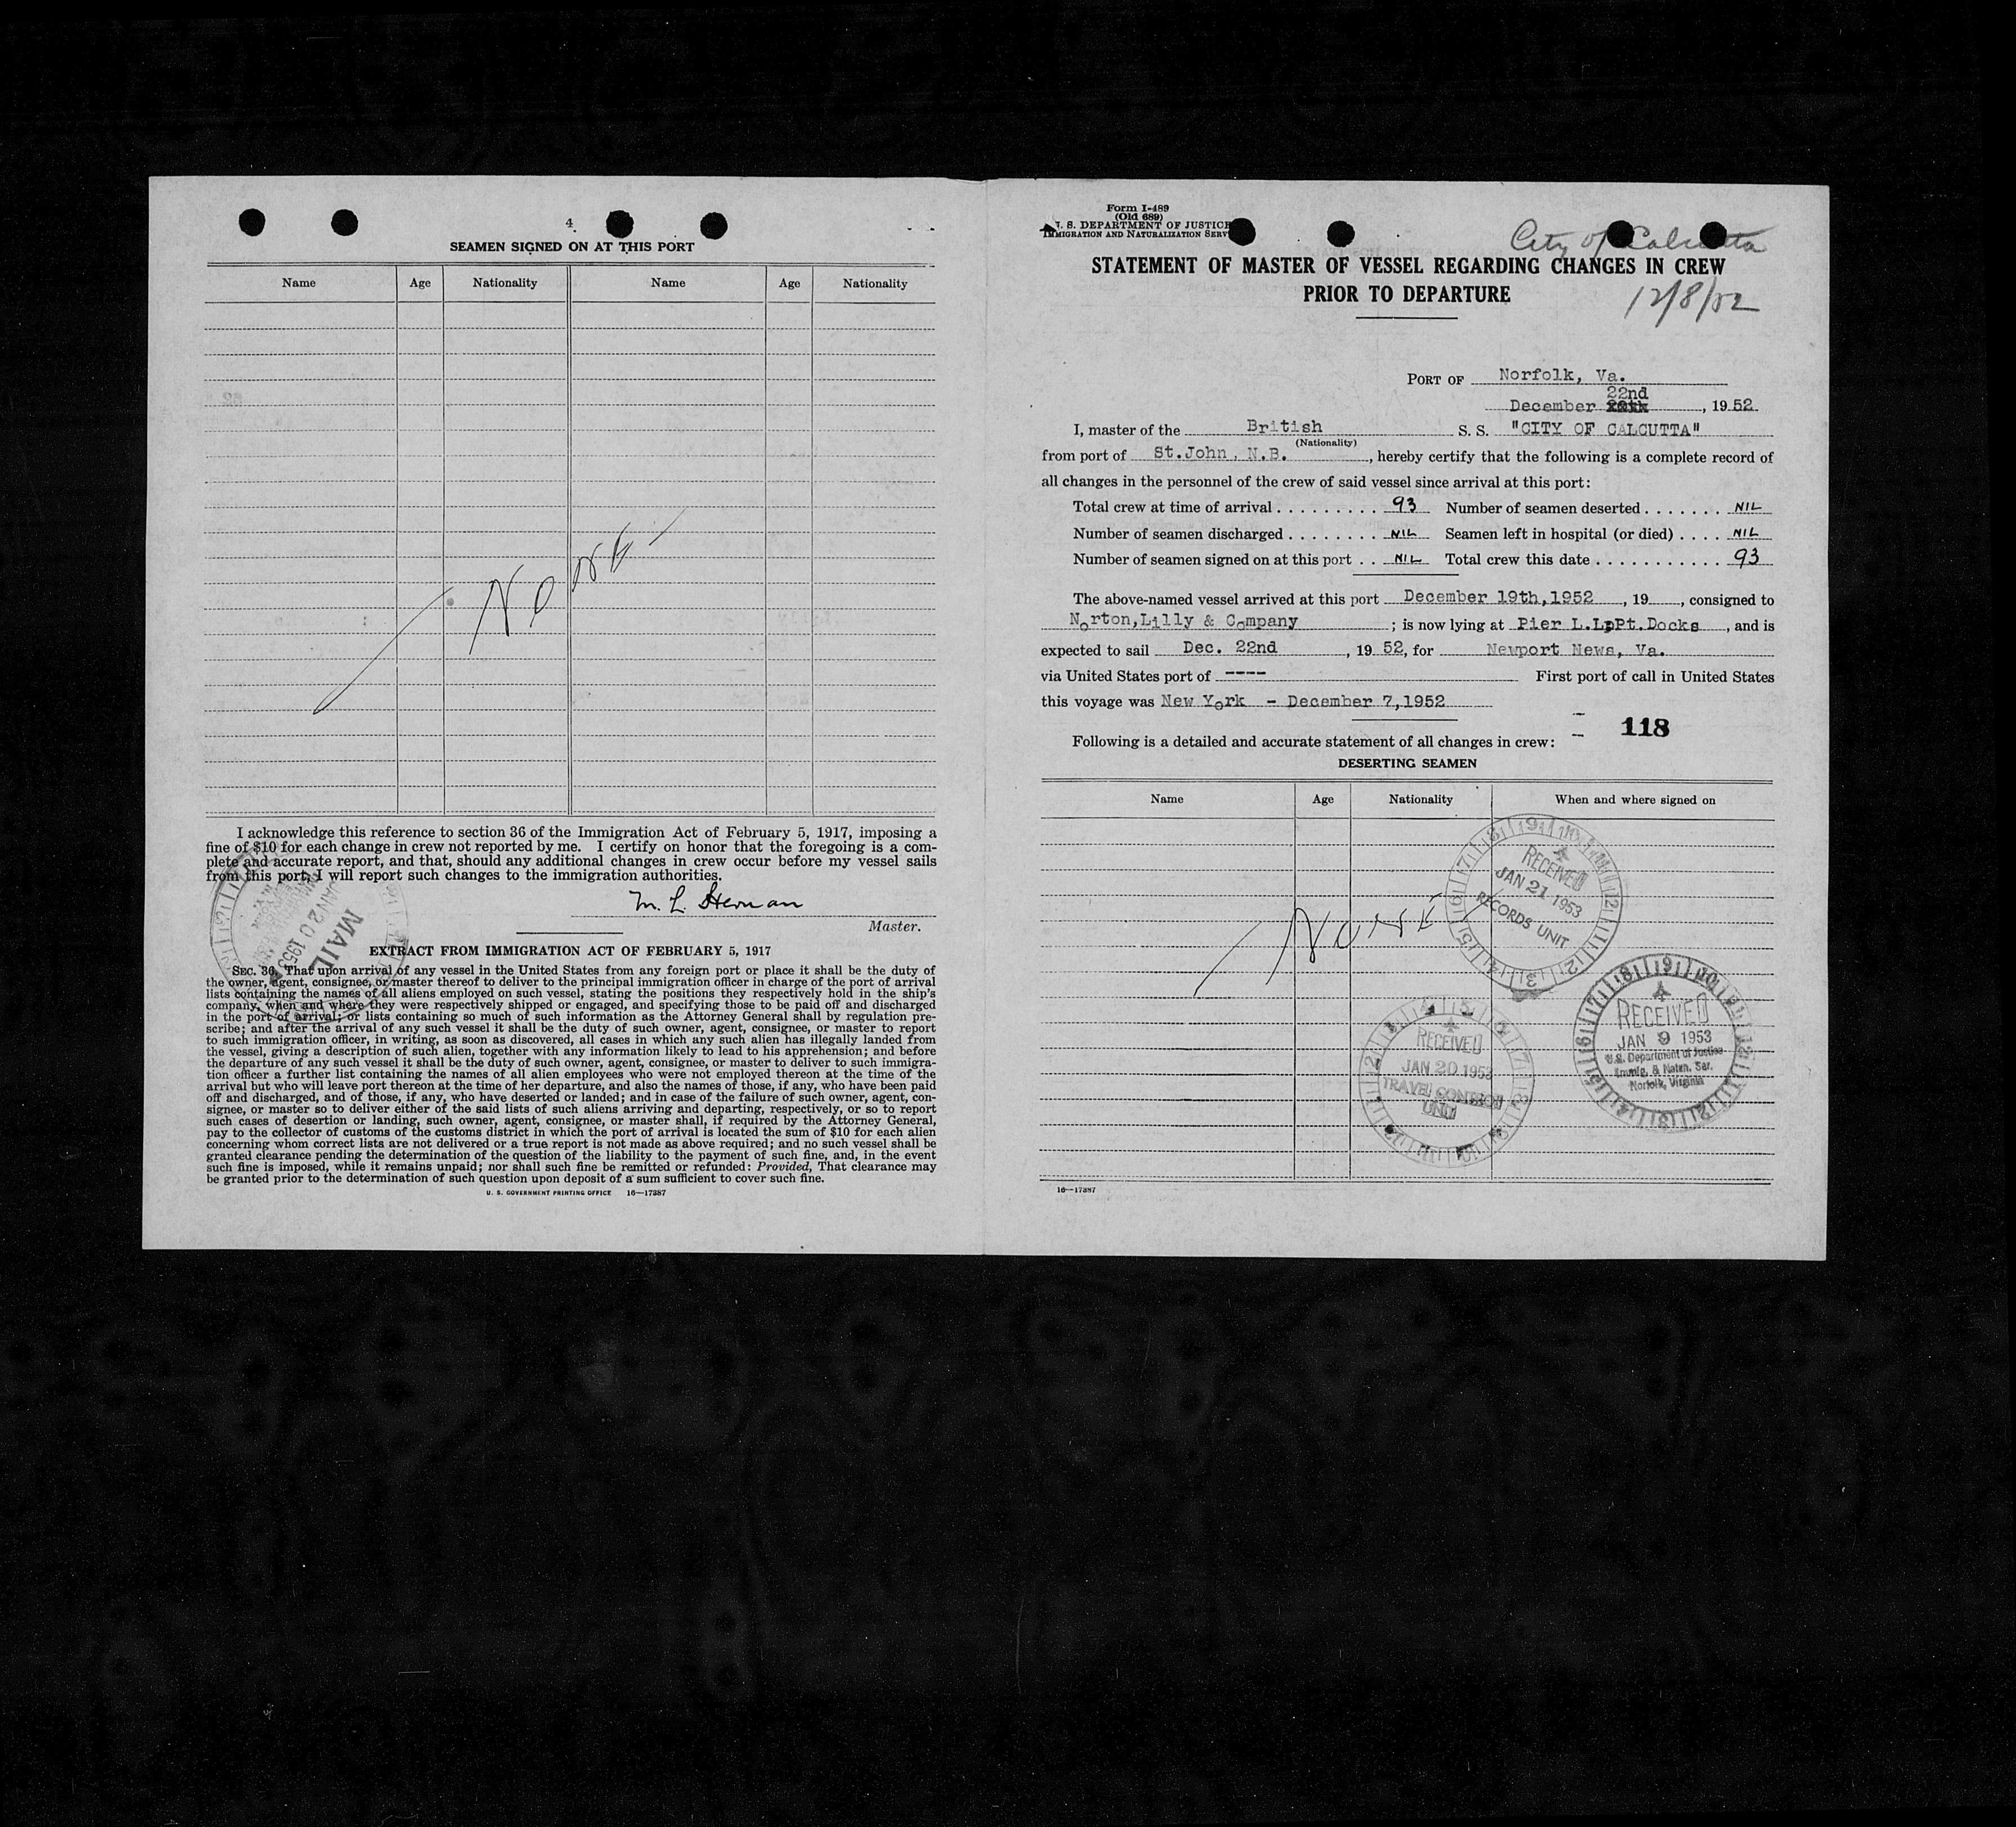 4
SEAMEN SIGNED ON AT THIS PORT
Name Age Nationality Name Age Nationality
NONE
I acknowledge this reference to section 36 of the Immigration Act of February 5, 1917, imposing a
fine of $10 for each change in crew not reported by me. I certify on honor that the foregoing is a com-
plete and accurate report, and that, should any additional changes in crew occur before my vessel sails
from this port, I will report such changes to the immigration authorities.
Master.
MAIL
JAN 20 1953
EXTRACT FROM IMMIGRATION ACT OF FEBRUARY 5, 1917
SEC. 36. That upon arrival of any vessel in the United States from any foreign port or place it shall be the duty of
the owner, agent, consignee, or master thereof to deliver to the principal immigration officer in charge of the port of arrival
lists containing the names of all aliens employed on such vessel, stating the positions they respectively hold in the ship's
company, when and where they were respectively shipped or engaged, and specifying those to be paid off and discharged
in the port of arrival; or lists containing so much of such information as the Attorney General shall by regulation pre-
scribe; and after the arrival of any such vessel it shall be the duty of such owner, agent, consignee, or master to report
to such immigration officer, in writing, as soon as discovered, all cases in which any such alien has illegally landed from
the vessel, giving a description of such alien, together with any information likely to lead to his apprehension; and before
the departure of any such vessel it shall be the duty of such owner, agent, consignee, or master to deliver to such immigra-
tion officer a further list containing the names of all alien employees who were not employed thereon at the time of the
arrival but who will leave port thereon at the time of her departure, and also the names of those, if any, who have been paid
off and discharged, and of those, if any, who have deserted or landed; and in case of the failure of such owner, agent, con-
signee, or master so to deliver either of the said lists of such aliens arriving and departing, respectively, or so to report
such cases of desertion or landing, such owner, agent, consignee, or master shall, if required by the Attorney General,
pay to the collector of customs of the customs district in which the port of arrival is located the sum of $10 for each alien
concerning whom correct lists are not delivered or a true report is not made as above required; and no such vessel shall be
granted clearance pending the determination of the question of the liability to the payment of such fine, and, in the event
such fine is imposed, while it remains unpaid; nor shall such fine be remitted or refunded: Provided, That clearance may
be granted prior to the determination of such question upon deposit of a sum sufficient to cover such fine.
U. S. GOVERNMENT PRINTING OFFICE 16—17387
Form I-489
(Old 689)
U. S. DEPARTMENT OF JUSTICE
IMMIGRATION AND NATURALIZATION SERV
City of Calcutta
STATEMENT OF MASTER OF VESSEL REGARDING CHANGES IN CREW
PRIOR TO DEPARTURE
12/8/52
PORT OF Norfolk, Va.
22nd
December , 1952
I, master of the British S. S. "CITY OF CALCUTTA"
(Nationality)
from port of St.John, N.B. , hereby certify that the following is a complete record of
all changes in the personnel of the crew of said vessel since arrival at this port:
Total crew at time of arrival . . . . . . . . . . 93 Number of seamen deserted . . . . . . . NIL
Number of seamen discharged . . . . . . . . NIL Seamen left in hospital (or died) . . . . NIL
Number of seamen signed on at this port . . NIL Total crew this date . . . . . . . . . . . 93
The above-named vessel arrived at this port December 19th,1952 , 19 , consigned to
Norton,Lilly & Company ; is now lying at Pier L.LpPt.Docks , and is
expected to sail Dec. 22nd , 19 52, for Newport News, Va.
via United States port of ---- First port of call in United States
this voyage was New York - December 7,1952
118
Following is a detailed and accurate statement of all changes in crew:
DESERTING SEAMEN
Name Age Nationality When and where signed on
RECEIVED
JAN 21 1953
RECORDS UNIT
NONE
RECEIVED
JAN 20 1953
TRAVEL CONTROL
UNIT
RECEIVED
JAN 9 1953
U.S. Department of Justice
Immig. & Natzn. Ser.
Norfolk, Virginia
16—17387